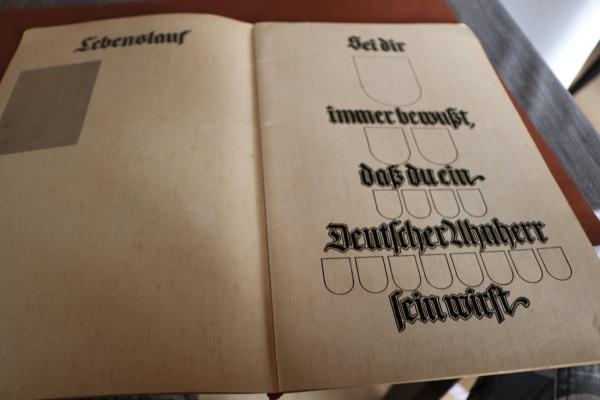 Lebenslauf
Sei dir
immer bewußt,
daß du ein
Deutscher Ahnherr
sein wirst.